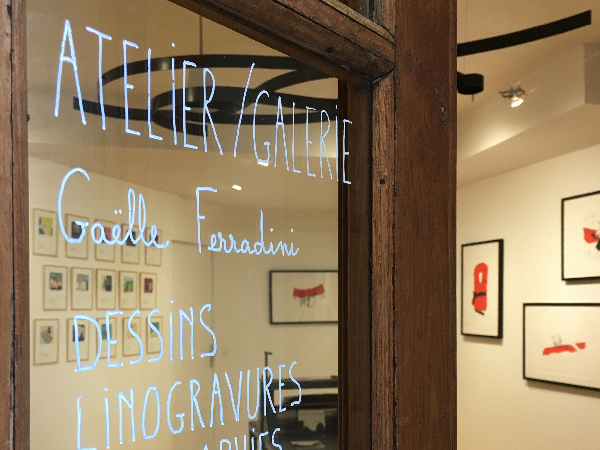 ATELIER/GALERIE
Gaëlle Ferradini
DESSINS
LINOGRAVURES